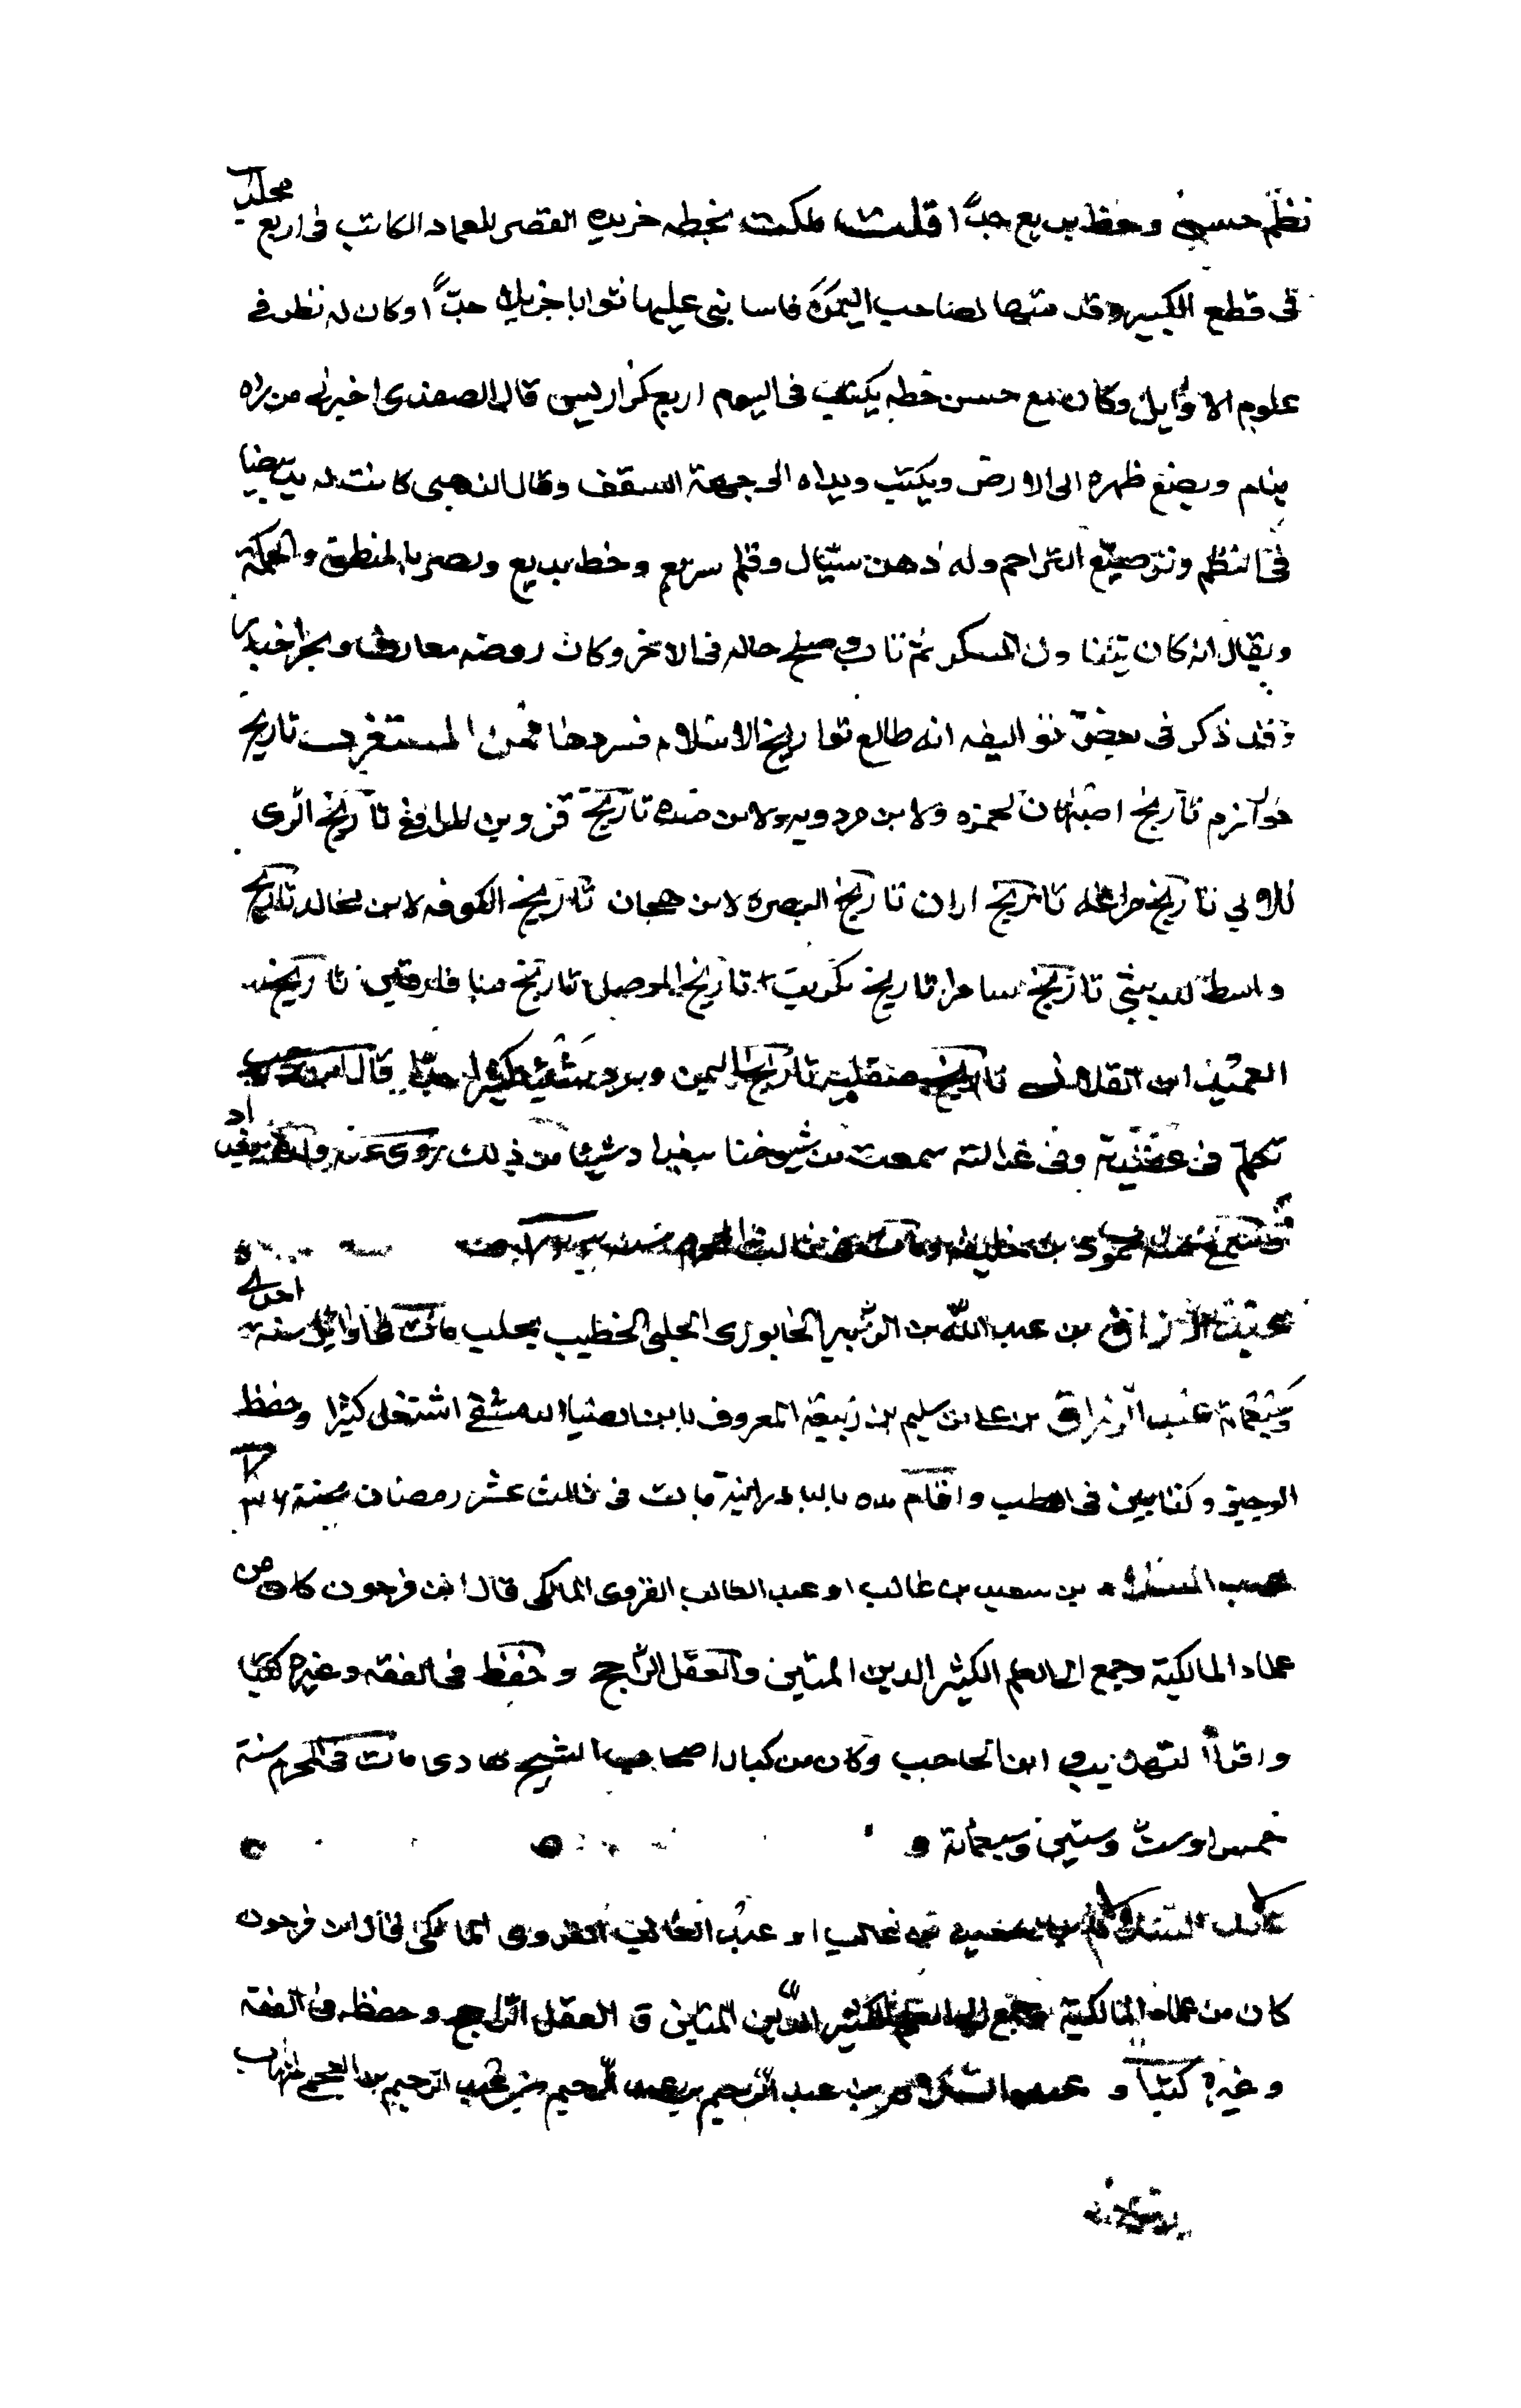 نظم حسن وخط بديع جدًّا قلت ملكت بخطه خريدة القصر للعماد الكاتب فى اربع مجلد
فى قطع الكبير وقد متها لصاحب اليمن فاسا بنى عليها ثوابا جزيلا جدًّا وكان له نظر فى
علوم الاوايل وكان مع حسن خطه يكتب فى اليوم اربع كراريس قال الصفدى اخبرنى من راه
ينام ويضع ظهره الى الارض ويكتب ويداه الى جهة السقف وقال الذهبى كانت له يد بيضا
فى النظم وترصيع التراجم وله ذهن سيّال وقلم سريع وخط بديع وبصر بالمنطق والحكمة
ويقال انه كان يتناول المسكر ثم تاب وصلح حاله فى الاخر وكان روضه معارف وبحر اخبار
وقد ذكر فى بعض تواليفه انه طالع تواريخ الاسلام فسردها فمن المستغرب تاريخ
خوارزم تاريخ اصبهان لحمزه ولابن مردويه ولابن منده تاريخ قزوين للرافعى تاريخ الرى
للابى تاريخ مراغه تاريخ اران تاريخ البصره لابن تاريخ الكوفه لابن مجالد تاريخ
واسط للدبيثى تاريخ سامرا تاريخ تكريت تاريخ الموصل تاريخ ميافارقين تاريخ
العميد ابن القلانسى تاريخ صقلية تاريخ اليمن وسرد شيئا كثيرا جدًّا قال ابن رجب
تكلم فى عقيدته وفى عدالته سمعت من شيوخنا ببغداد شيئا من ذلك روى عنه
وسمع منه محمود بن خليفه ومات فى ثالث المحرم سنة
عبد الرزاق بن عبد الله بن الزبير الخابورى الحلبى الخطيب بحلب مات فى اوايل سنة احدى
وسبعماية عبد الرزاق بن على بن سليم بن ربيعة المعروف بابن الضيا الدمشقى اشتغل كثيرا وحفظ
الوجيز وكتابين فى الطب واقام مده بالبادرايية مات فى ثالث عشر رمضان سنة
عبد السلام بن سعيد بن غالب ابو عبد الغالب القروى المالكى قال ابن فرحون كان من
علماء المالكية وجمع الى العلم الكثير الدين المتين والعقل الراجح وحفظ فى الفقه وغيره كتبا
واقرأ التهذيب و ابن الحاجب وكان من كبار اصحاب الشيخ هادى مات فى المحرم سنة
خمس او ست وستين وسبعماية
عبد السلام بن سعيد بن غالب ابو عبد الغالب القروى المالكى قال ابن فرحون
كان من علماء المالكية وجمع الى العلم الكثير الدين المتين و العقل الراجح وحفظ فى الفقه
وغيره كتبًا و عبد السلام بن عبد الرحيم بن عبد الرحيم بن عبد الرحيم بن العجمى شهاب